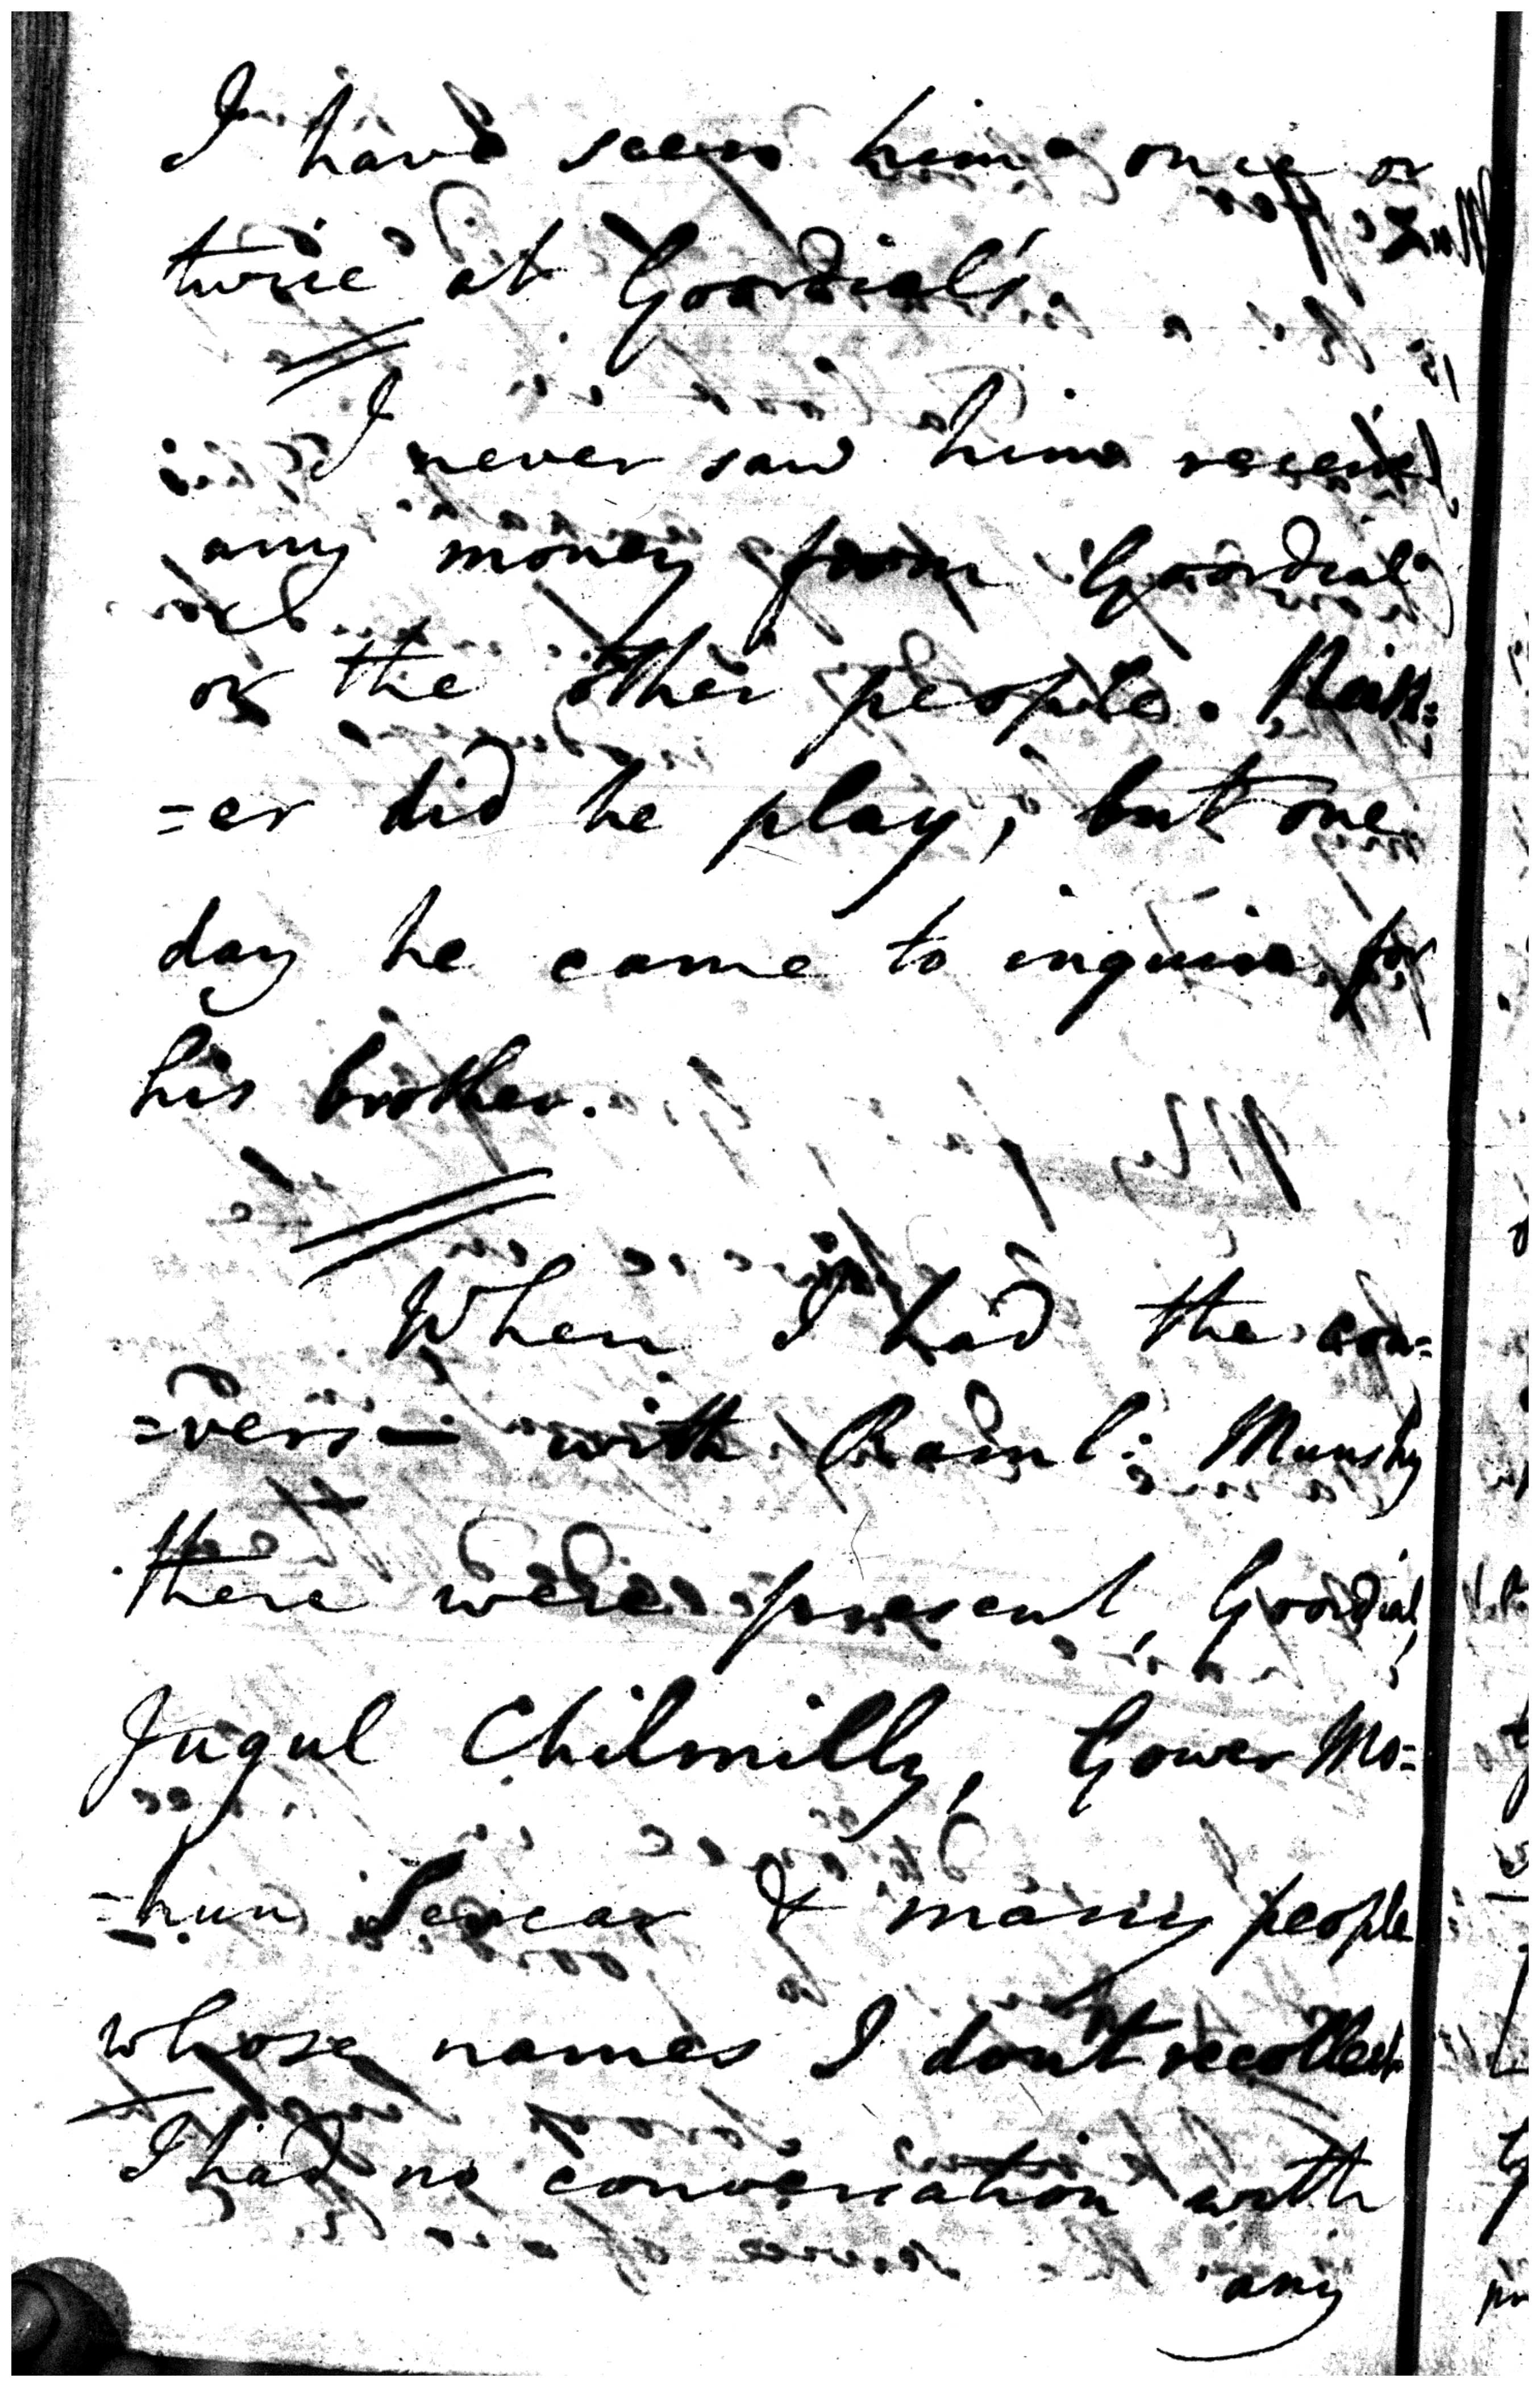 I have seen him once or
twice at Goordial's.
I never saw him receive
any money from Goordial
or the other people. Neith=
=er did he play; but one
day he came to inquire for
his brother.
When I had the con=
=versn with Raml: Munshy
there were present, Goordial,
Jugul Chilmilly, Gower Mo=
=hun Sircar & many people
whose names I don't recollect
I had no conversation with
any